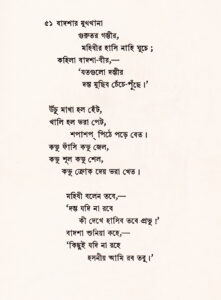 ৫১ বাদশার মুখখানা
গুরুতর গম্ভীর,
মহিষীর হাসি নাহি ঘুচে;
কহিলা বাদশা-বীর,—
'যতগুলো দম্ভীর
দম্ভ মুছিব চেঁচে-পুঁছে।'
উঁচু মাথা হল হেঁট,
খালি হল ভরা পেট,
শপাশপ্ পিঠে পড়ে বেত।
কভু ফাঁসি কভু জেল,
কভু শূল কভু শেল,
কভু ক্রোক দেয় ভরা খেত।
মহিষী বলেন তবে,—
'দম্ভ যদি না রবে
কী দেখে হাসিব তবে প্রভু।'
বাদশা শুনিয়া কহে,—
'কিছুই যদি না রহে
হসনীয় আমি রব তবু।'